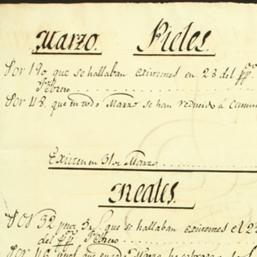 Marzo. Pieles.
Por 190, que se hallaban existentes en 28 del pp.do
Febrero
Por 48, que en todo Marzo se han reducido á
Existen en 31 de Marzo
Reales.
Por 32 que se hallaban existentes el 2
del pp. Febrero